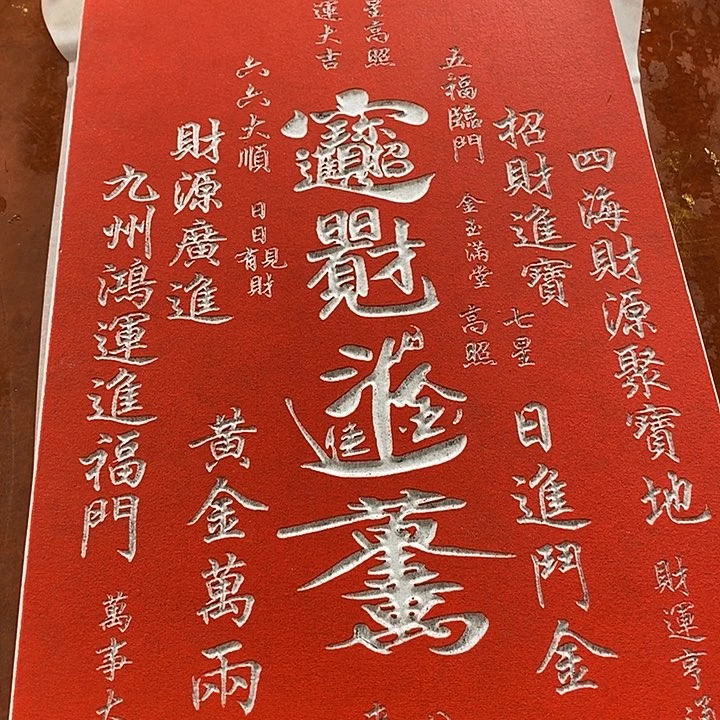 星高照
運大吉
四海財源聚寶地
財運亨
招財進寶
七星
高照
日進鬥金
五福臨門
金玉滿堂
六六大順
日日見財
有
財源廣進
黃金萬兩
九州鴻運進福門
萬事大